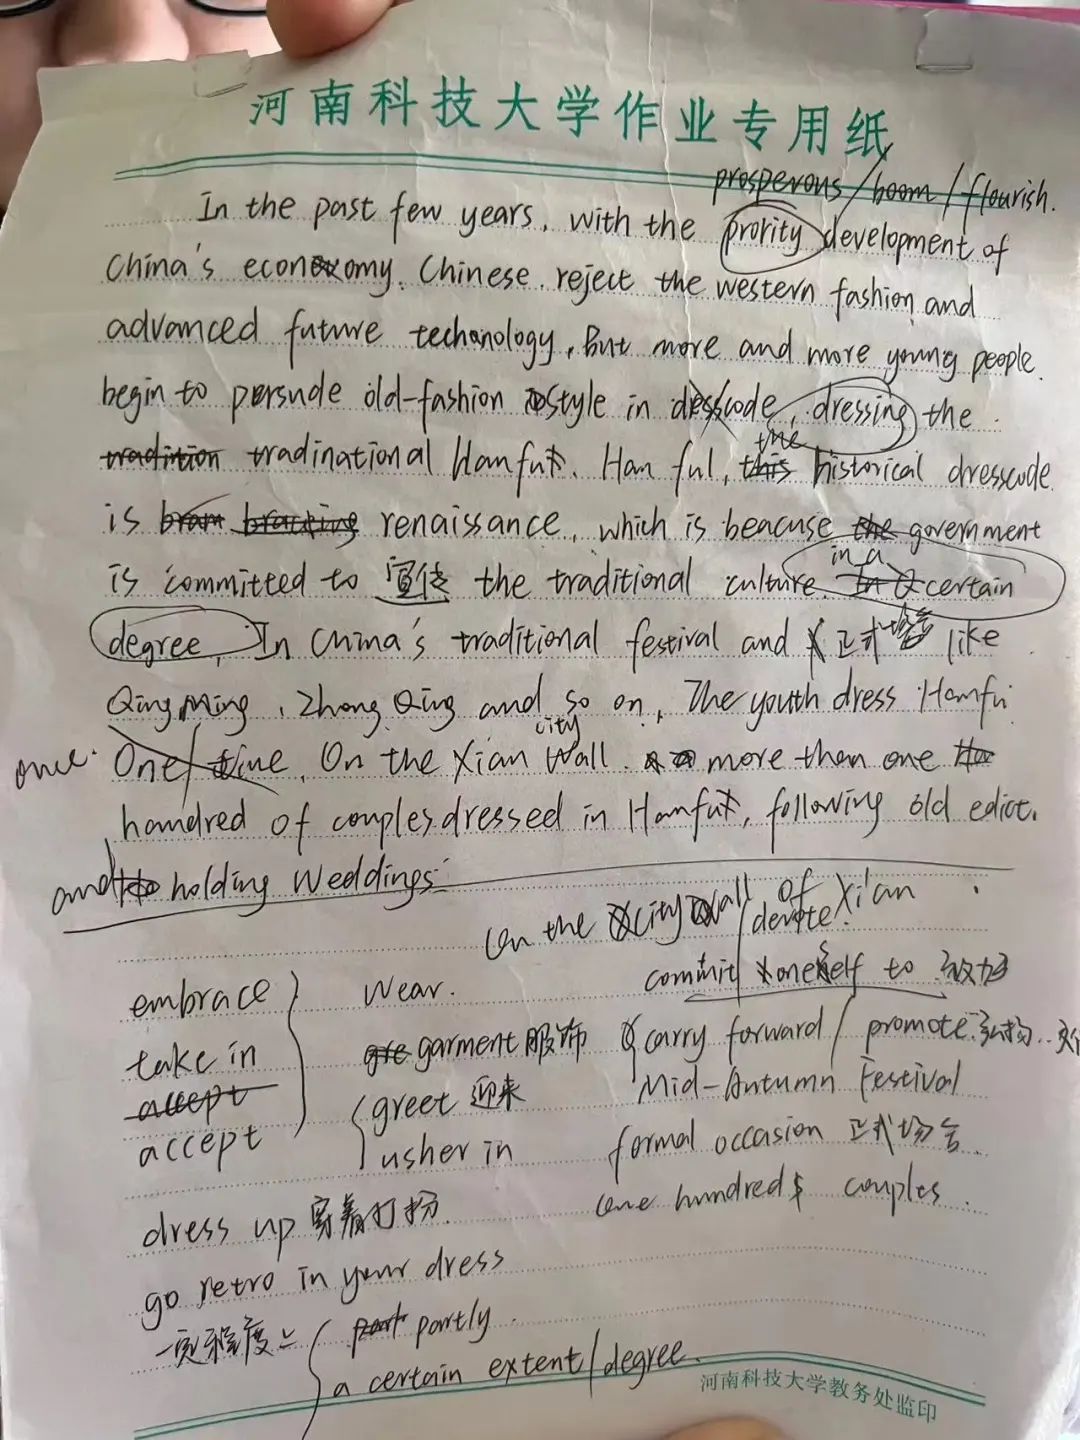 河南科技大学作业专用纸
prosperous/boom/flourish.
In the past few years, with the prority development of
China's economy. Chinese reject the western fashion and
advanced future techonology, But more and more young people
begin to persude old-fashion style in dresscode, dressing the
tradinational Hanfu. Han ful, the historical dresscode
is renaissance, which is beacuse government
is committed to 宣传 the traditional culture. in a certain
degree, In China's traditional festival and 正式场合 like
Qing Ming, Zhong Qing and so on, The youth dress Hanfu
once. One time, On the Xian city Wall. more then one
hondred of couples dressed in Hanfu, following old edict.
and holding Weddings
On the city wall of Xi'an
embrace
take in
accept
accept
dress up 穿着打扮.
go retro in your dress
一定程度上
partly
a certain extent/degree.
wear.
garment 服饰
greet 迎来
usher in
devote
commit oneself to 致力
carry forward/promote 弘扬
Mid-Autumn Festival
formal occasion 正式场合
one hundred couples.
河南科技大学教务处监印